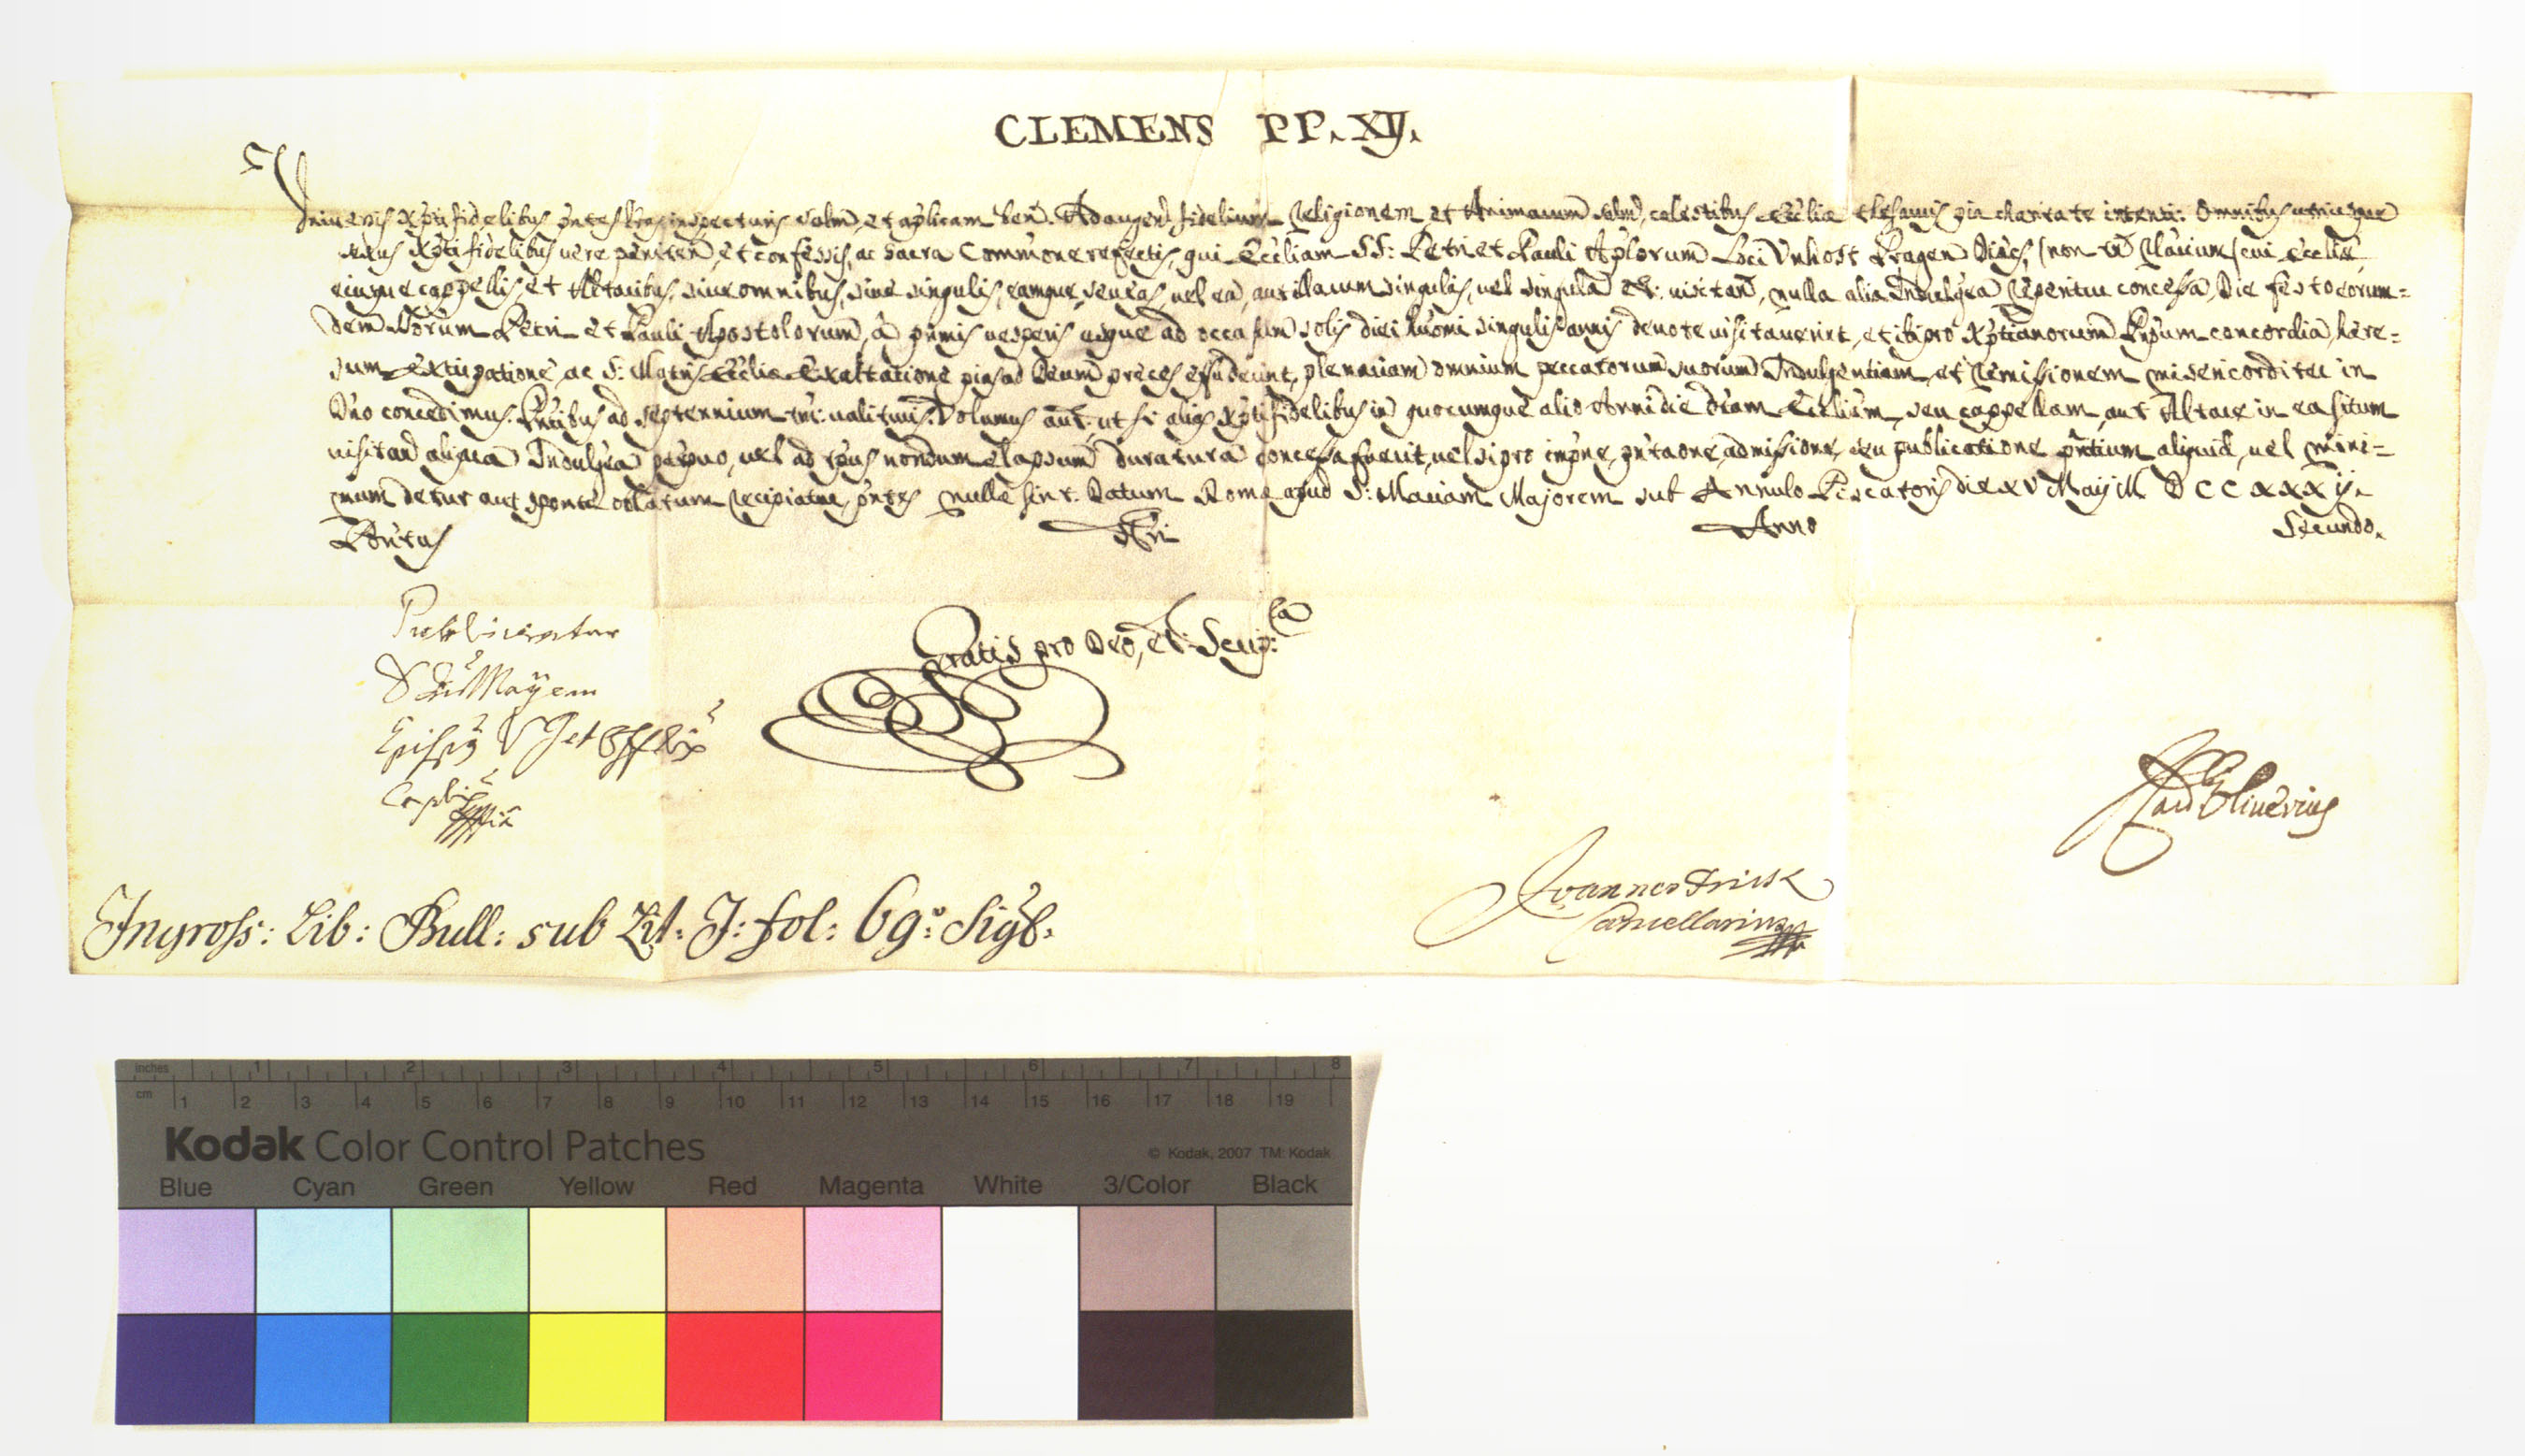 CLEMENS PP. XIJ.
Universis Xpti fidelibus pntes Lras inspecturis salm et aplicam ben. Ad augend fidelium Religionem et Animarum salm, celestibus Ecclie thesauris pia charitate intenti: omnibus utriusque
sexus Xpti fidelibus vere peniten, et confessis, ac Sacra Commune refectis, qui Eccliam SS: Petri et Pauli Aplorum Loci Unhost Pragen Dioes, (non tn Rlarium (cui Ecclie
eiusque cappellis, et Altaribus, sive omnibus, sive singulis, eamque, seu eas, vel ea, aut illarum singulis, vel singula et: visitan, nulla alia Indulgea reperitur concessa, Die festo eorum=
dem Storum Petri et Pauli Apostolorum, a primis vesperis usque ad occasum solis diei hmoi singulis annis devote visitaverint, et ibi pro Xptianorum Prpum concordia, here=
sum extirpatione, ac S: Matris Ecclie Exaltatione pias ad Deum preces effuderint, plenariam omnium peccatorum suorum Indulgentiam, et remissionem misericorditer in
Dno concedimus. Pntibus ad septennium tm: valituris. Volumus aut: ut si alias Xpti fidelibus in quocumque alio Anni die dtam Eccliam, seu cappellam, aut Altare in ea situm
visitan aliqua Indulgea perpuo, vel ad tpus nondum elapsum duratura concessa fuerit, vel si pro impne, pntaone, admissione, seu publicatione pntium aliquid, vel mini=
mum detur aut sponte oblatum recipiatur, pntes nulle sint. Datum Rome apud S: Mariam Majorem sub Annulo Piscatoris die XV Maij M D C C X X X ij.
Pontus Nri Anno Secundo.
Publicentur
Gratis pro Deo, et Scrip:ra
Card Oliverius
Joannes
Cancellarius
Ingross: Lib: Bull: sub Lit: J: fol: 69: Sigb.
inches 1 2 3 4 5 6 7 8
cm 1 2 3 4 5 6 7 8 9 10 11 12 13 14 15 16 17 18 19
Kodak Color Control Patches
© Kodak, 2007 TM: Kodak
Blue Cyan Green Yellow Red Magenta White 3/Color Black